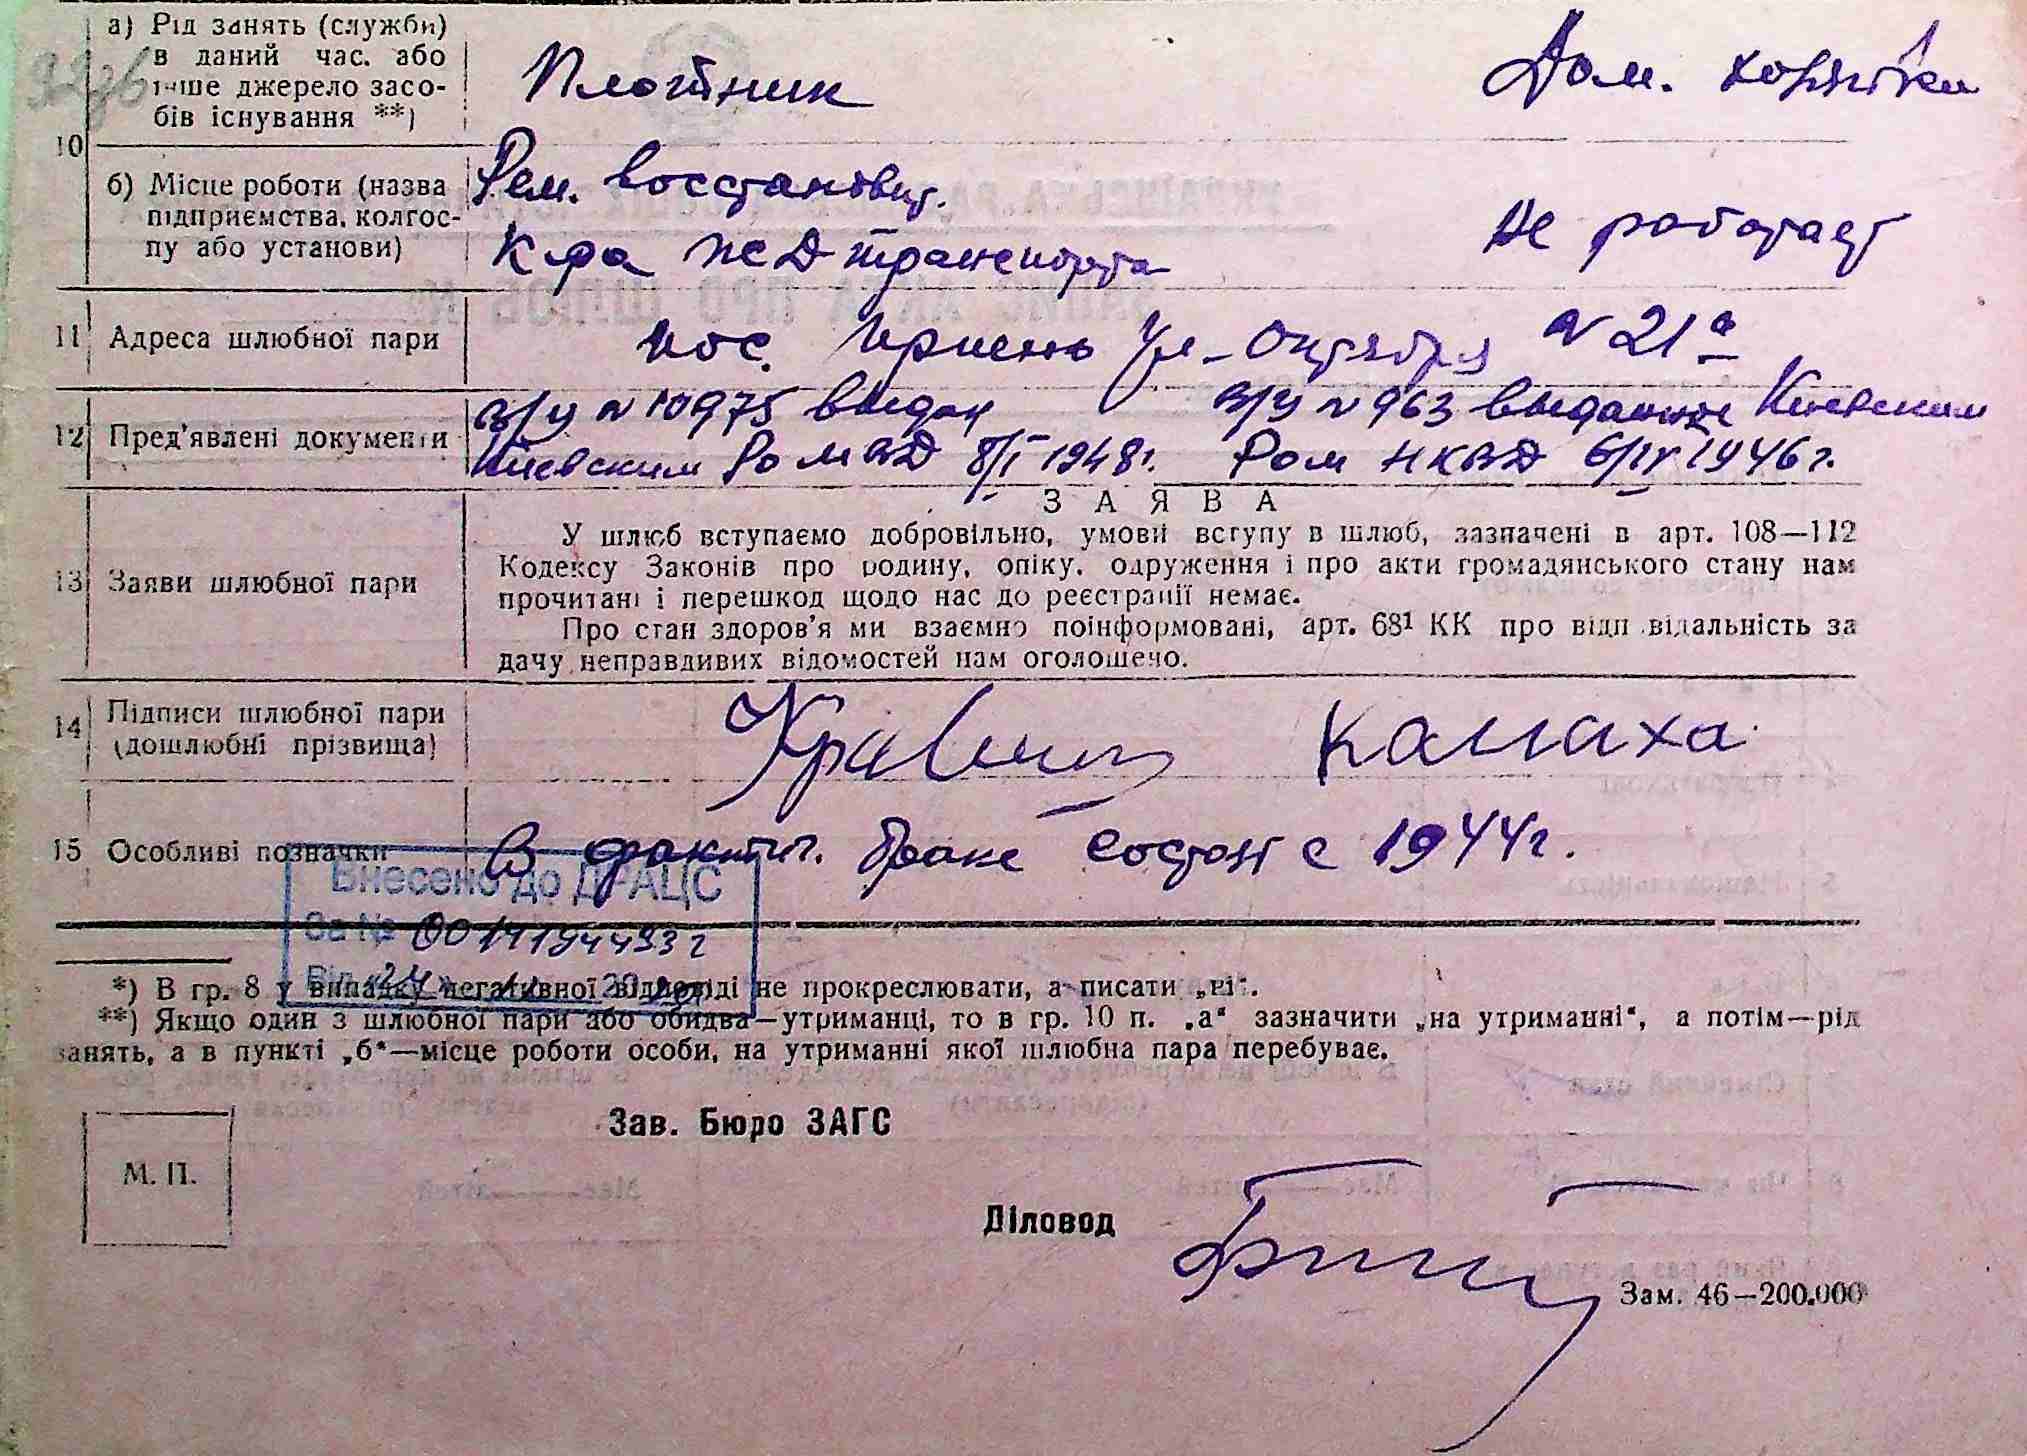 а) Рід занять (служби)
в даний час. або
інше джерело засо-
бів існування **)
Плотник
Дом. хозяйка
10
б) Місце роботи (назва
підприємства, колгос-
пу або установи)
Рем. восстановит.
К-ра ЖД транспорта
Не работает
11 Адреса шлюбної пари
пос. Ирпень Ул. Октября № 21а
12 Пред'явлені документи
в/у № 10975 выдан
Киевским Ро МВД 8/I 1948г.
в/у № 963 выданное Киевским
Ром НКВД 6/IV 1946г.
13 Заяви шлюбної пари
ЗАЯВА
У шлюб вступаємо добровільно, умови вступу в шлюб, зазначені в арт. 108—112
Кодексу Законів про родину, опіку, одруження і про акти громадянського стану нам
прочитані і перешкод щодо нас до реєстрації немає.
Про стан здоров'я ми взаємно поінформовані, арт. 68¹ КК про відповідальність за
дачу неправдивих відомостей нам оголошено.
14 Підписи шлюбної пари
(дошлюбні прізвища)
Камаха
15 Особливі позначки
В фактич. браке состоят с 1944г.
Внесено до ДРАЦС
За № 00141944932
Від «24»
*) В гр. 8 у випадку негативної відповіді не прокреслювати, а писати „ні".
**) Якщо один з шлюбної пари або обидва—утриманці, то в гр. 10 п. „а" зазначити „на утриманні", а потім—рід
занять, а в пункті „б"—місце роботи особи, на утриманні якої шлюбна пара перебуває.
Зав. Бюро ЗАГС
М. П.
Діловод
Зам. 46—200.000